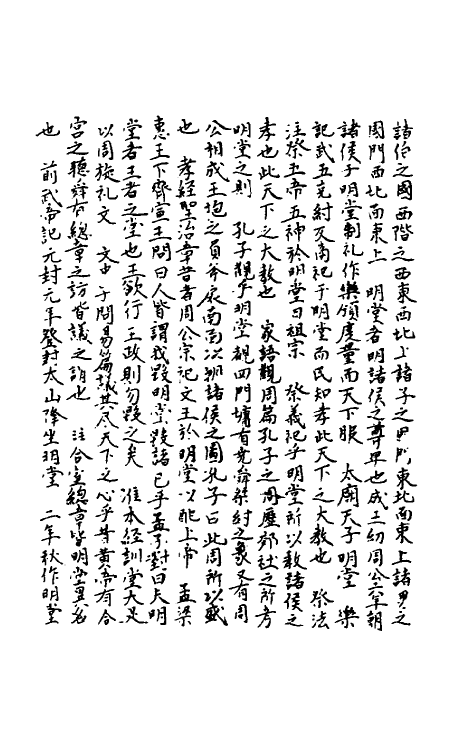 諸伯之國西階之西東西北上諸子之門東北面東上諸男之
國門西北面東上　明堂者明諸侯之尊卑也成王幼周公朝
諸侯于明堂制礼作樂頒度量而天下服　太廟天子明堂　樂
記武王克紂又商祀于明堂而民知孝此天下之大教也　祭法
注祭五帝五神於明堂曰祖宗　祭義祀乎明堂所以教諸侯之
孝也此天下之大教也　家語觀周篇孔子之周歷郊社之所考
明堂之則　孔子觀乎明堂觀四門墉有堯舜桀紂之象又有周
公相成王抱之負斧扆南面以朝諸侯之圖孔子曰此周所以盛
也　孝經聖治章昔者周公宗祀文王於明堂以配上帝　孟梁
惠王下齊宣王問曰人皆謂我毀明堂毀諸已乎孟子對曰夫明
堂者王者之堂也王欲行王政則勿毀之矣　淮本經訓堂大足
以周旋礼文　文中子問易篇議其尽天下之心乎昔黄帝有合
宮之聽舜有總章之訪皆議之謂也　注合宮總章皆明堂異名
也　前武帝記元封元年登封太山降坐明堂　二年秋作明堂